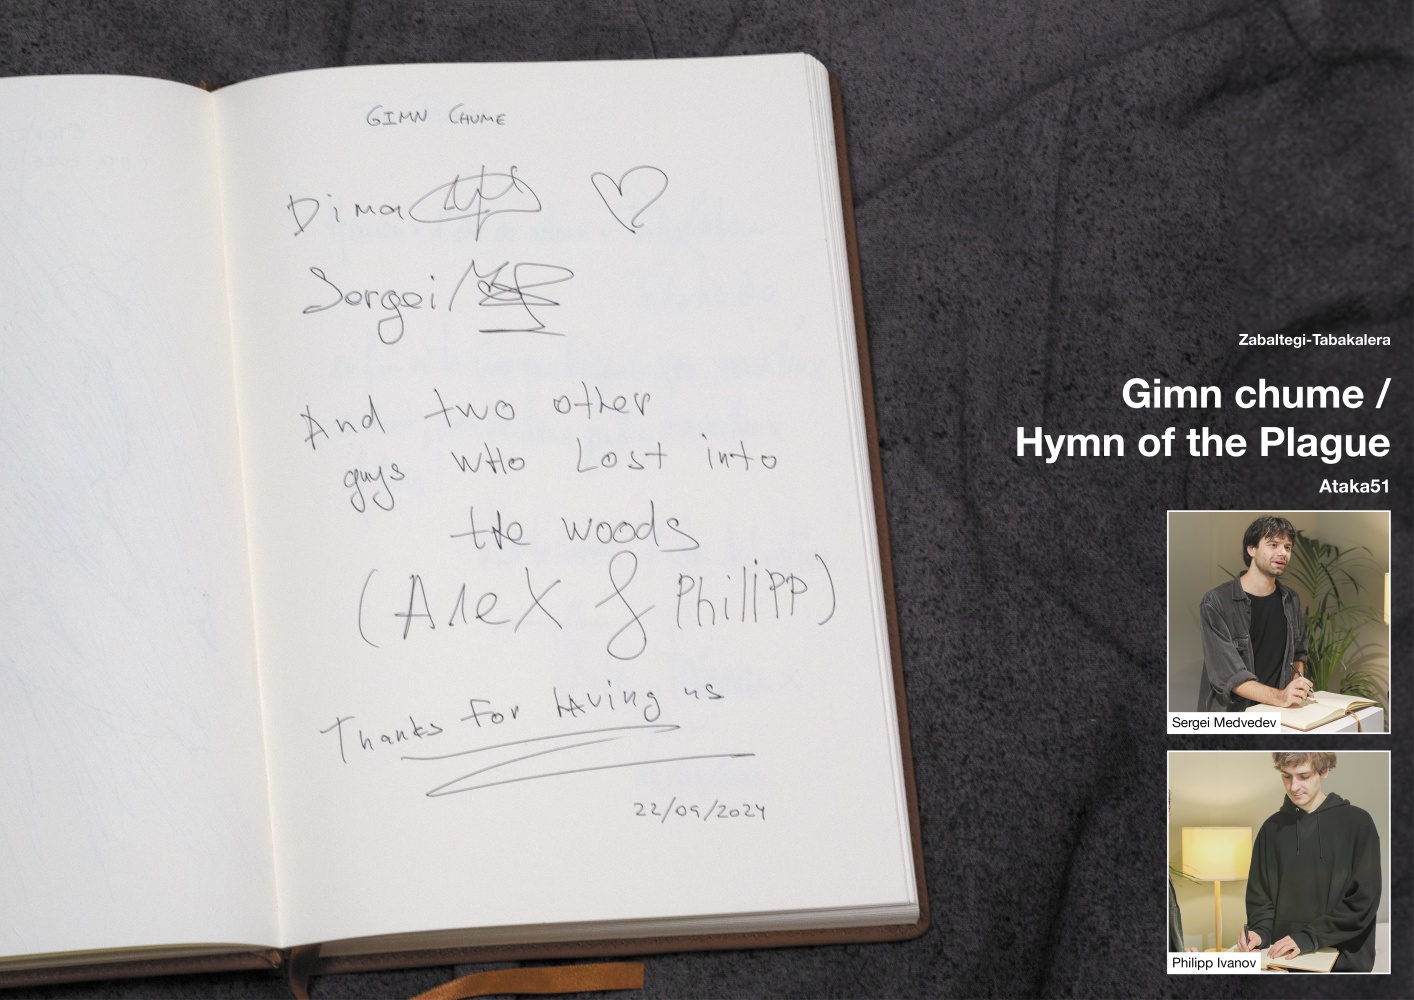 GIMN CHUME
Dima
Sergei
And two other
guys WHO LOST into
the woods
(Alex & Philipp)
Thanks for having us
22/09/2024
Zabaltegi-Tabakalera
Gimn chume /
Hymn of the Plague
Ataka51
Sergei Medvedev
Philipp Ivanov